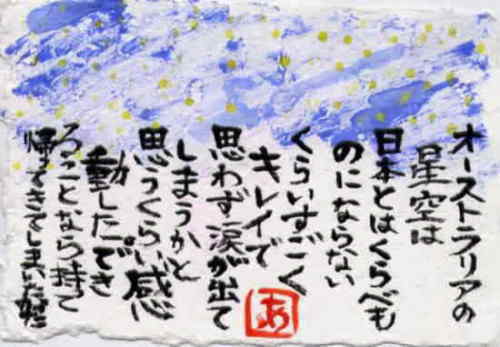 オーストラリアの
星空は
日本とはくらべも
のにならない
くらいすごく
キレイで
思わず涙が出て
しまうかと
思うくらい感
動した。でき
ることなら持って
帰ってきてしまいた